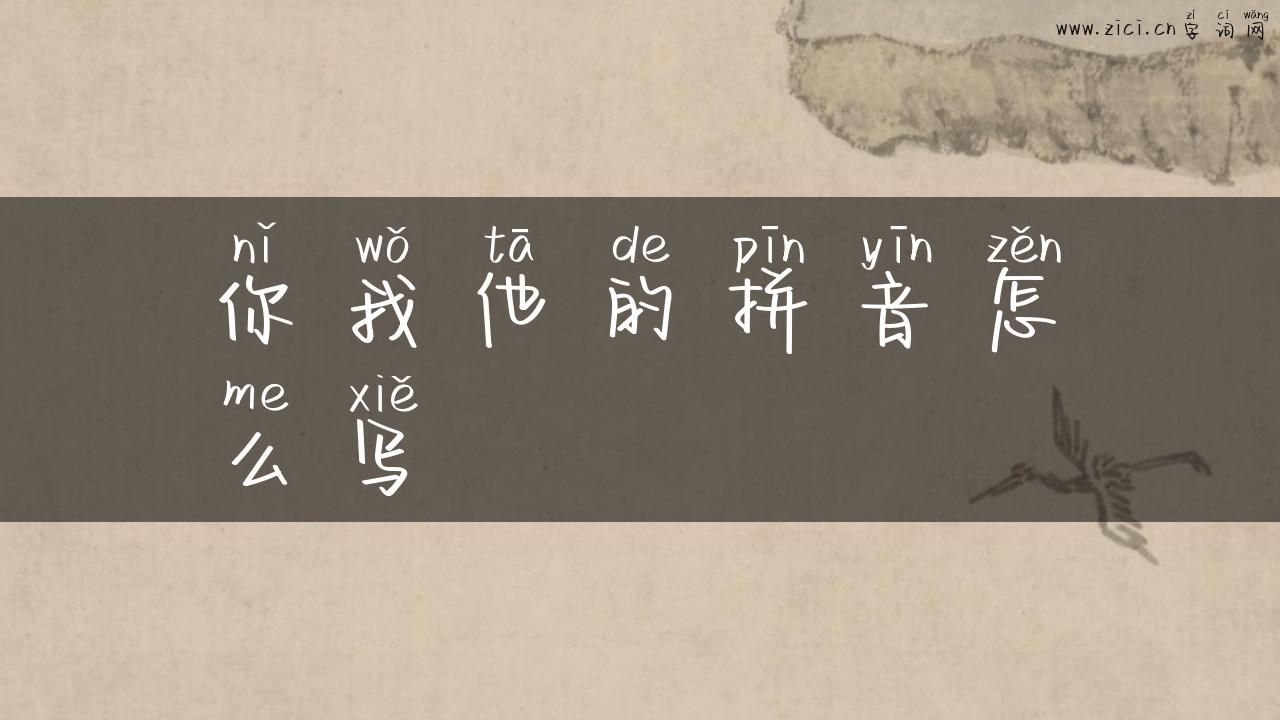 zì cí wǎng
www.zici.cn 字词网
nǐ wǒ tā de pīn yīn zěn
你我他的拼音怎
me xiě
么写